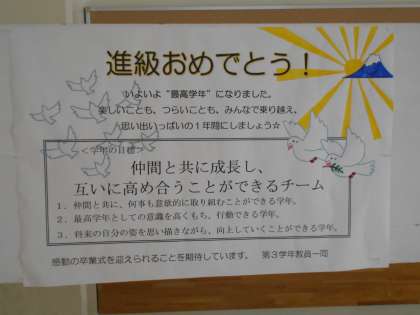 進級おめでとう！
いよいよ“最高学年”になりました。
楽しいことも、つらいことも、みんなで乗り越え、
思い出いっぱいの１年間にしましょう☆
＜学年の目標＞
仲間と共に成長し、
互いに高め合うことができるチーム
１．仲間と共に、何事も意欲的に取り組むことができる学年。
２．最高学年としての意識を高くもち、行動できる学年。
３．将来の自分の姿を思い描きながら、向上していくことができる学年。
感動の卒業式を迎えられることを期待しています。　第３学年教員一同